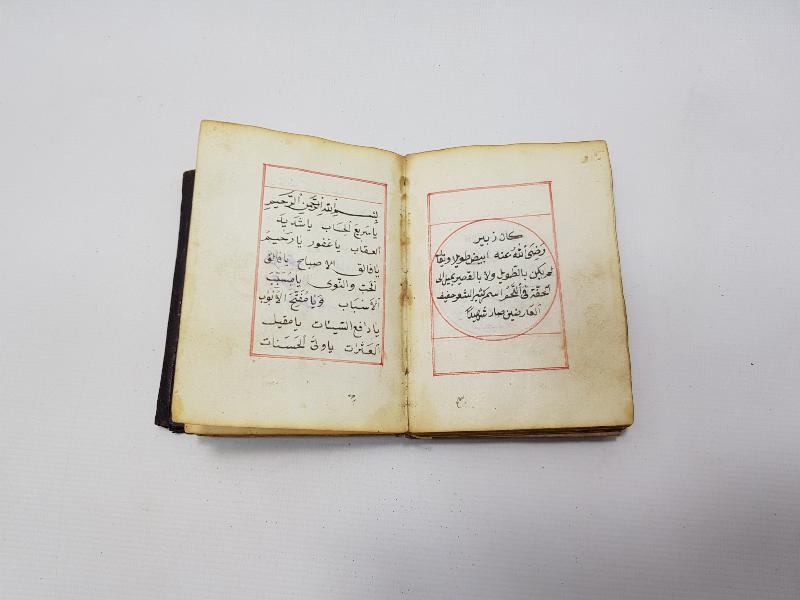 كان زبير
رضى الله عنه ابيض طويل ويقال
لم يكن بالطويل ولا بالقصير يميل الى
الخفة فى اللحم اسمر كثير الشعر خفيف
العارضين صار شهيدًا
بسم الله الرحمن الرحيم
يا سريع الحساب يا شديد
العقاب يا غفور يا رحيم
يا فالق الاصباح يا فالق
الحب والنوى يا مسبب
الأسباب ويا مفتح الأبواب
يا دافع السيئات يا مقيل
العثرات يا ولى الحسنات